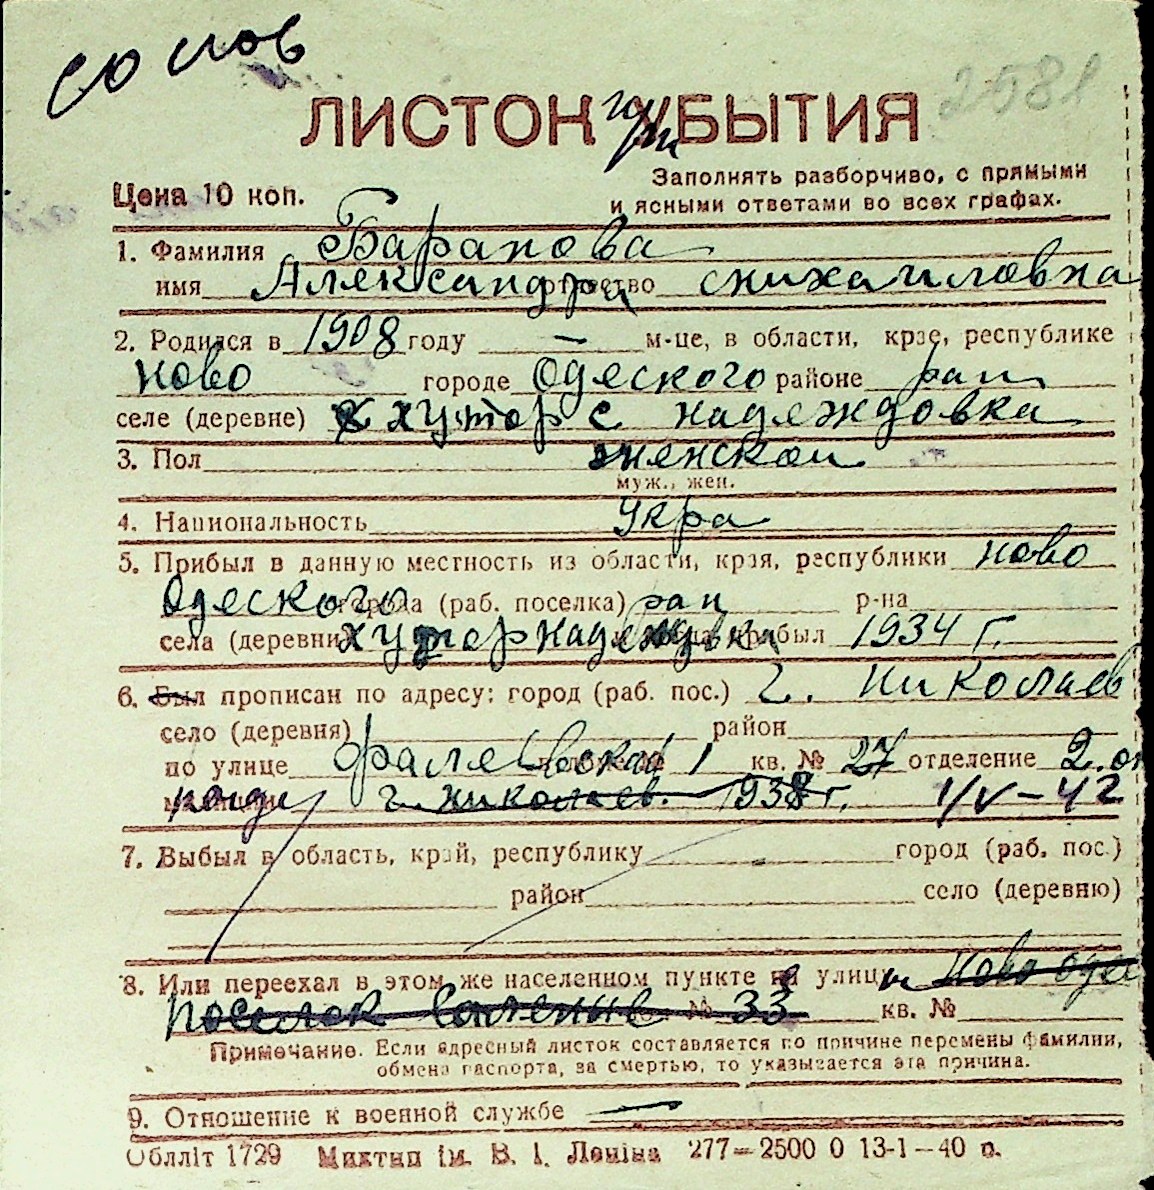 2581
ЛИСТОК УБЫТИЯ
Цена 10 коп.
Заполнять разборчиво, с прямыми
и ясными ответами во всех графах.
1. Фамилия Баранова
имя Александра отчество михаиловна
2. Родился в 1908 году — м-це, в области, крае, республике
ново городе Одеского районе
селе (деревне) хутор с надеждовка
3. Пол женской
муж., жен.
4. Национальность Укра
5. Прибыл в данную местность из области, края, республики ново
Одеского города (раб. поселка) р-на
села (деревни) хутор прибыл 1934 г.
6. Был прописан по адресу: город (раб. пос.) г. николаев
село (деревня) район
по улице фалеевская 1 кв. № 27 отделение 2
г. николаев. 1938 г. 1/V-42
7. Выбыл в область, край, республику город (раб. пос.)
район село (деревню)
8. Или переехал в этом же населенном пункте на улицу ново
поселок № 33 кв. №
Примечание. Если адресный листок составляется по причине перемены фамилии,
обмена паспорта, за смертью, то указывается эта причина.
9. Отношение к военной службе —
Облліт 1729 Миктип ім. В. І. Леніна 277—2500 0 13-1—40 р.